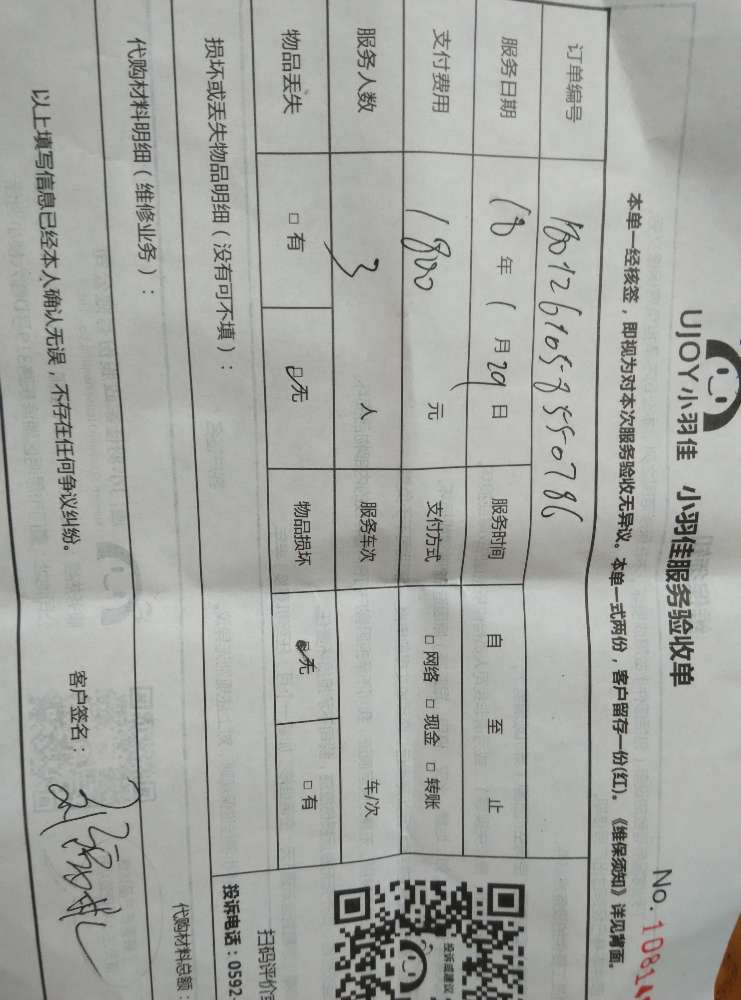 UJOY小羽佳 小羽佳服务验收单
No. 1081
本单一经核签，即视为对本次服务验收无异议。本单一式两份，客户留存一份(红)。《维保须知》详见背面。
订单编号 180126105-8550786
服务日期 18 年 1 月 29 日 服务时间 自 至 止
支付费用 1800 元 支付方式 □ 网络 □ 现金 □ 转账
服务人数 3 人 服务车次 车/次
物品丢失 □ 有 □无 物品损坏 □无 □ 有
损坏或丢失物品明细（没有可不填）：
代购材料明细（维修业务）：
代购材料总额：
以上填写信息已经本人确认无误，不存在任何争议纠纷。
客户签名：
投诉或建议
扫码评价
投诉电话：0592-